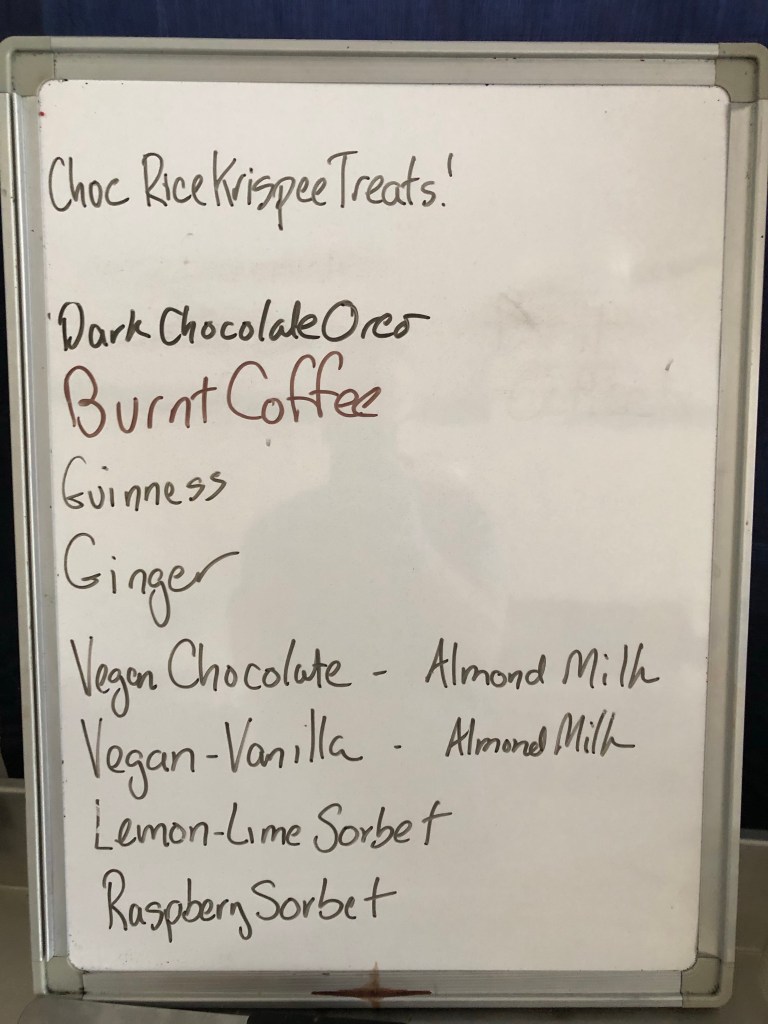 Choc Rice Krispee Treats!
Dark Chocolate Oreo
Burnt Coffee
Guinness
Ginger
Vegan Chocolate - Almond Milk
Vegan-Vanilla - Almond Milk
Lemon-Lime Sorbet
Raspberry Sorbet